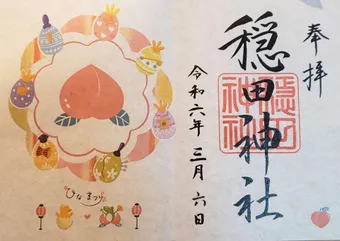 奉拝
穏田神社
令和六年三月六日
ひなまつり